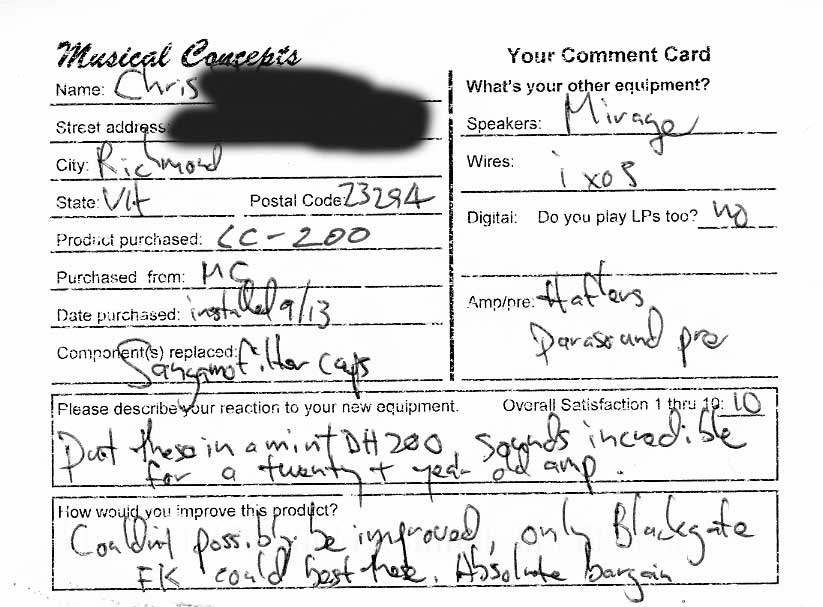 Musical Concepts
Your Comment Card
Name: Chris
Street address:
City: Richmond
State: VA Postal Code 23294
Product purchased: LC-200
Purchased from: MC
Date purchased: installed 9/13
Component(s) replaced: Sangamo filter caps
What's your other equipment?
Speakers: Mirage
Wires: ixos
Digital: Do you play LPs too? NO
Amp/pre: Haflers
Parasound pre
Please describe your reaction to your new equipment. Overall Satisfaction 1 thru 10: 10
Put these in a mint DH200, sounds incredible
for a twenty + year old amp.
How would you improve this product?
Couldn't possibly be improved, only Blackgate
FK could best these. Absolute bargain